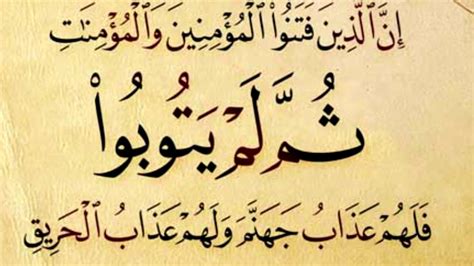 إِنَّ ٱلَّذِينَ فَتَنُوا۟ ٱلْمُؤْمِنِينَ وَٱلْمُؤْمِنَـٰتِ
ثُمَّ لَمْ يَتُوبُوا۟
فَلَهُمْ عَذَابُ جَهَنَّمَ وَلَهُمْ عَذَابُ ٱلْحَرِيقِ